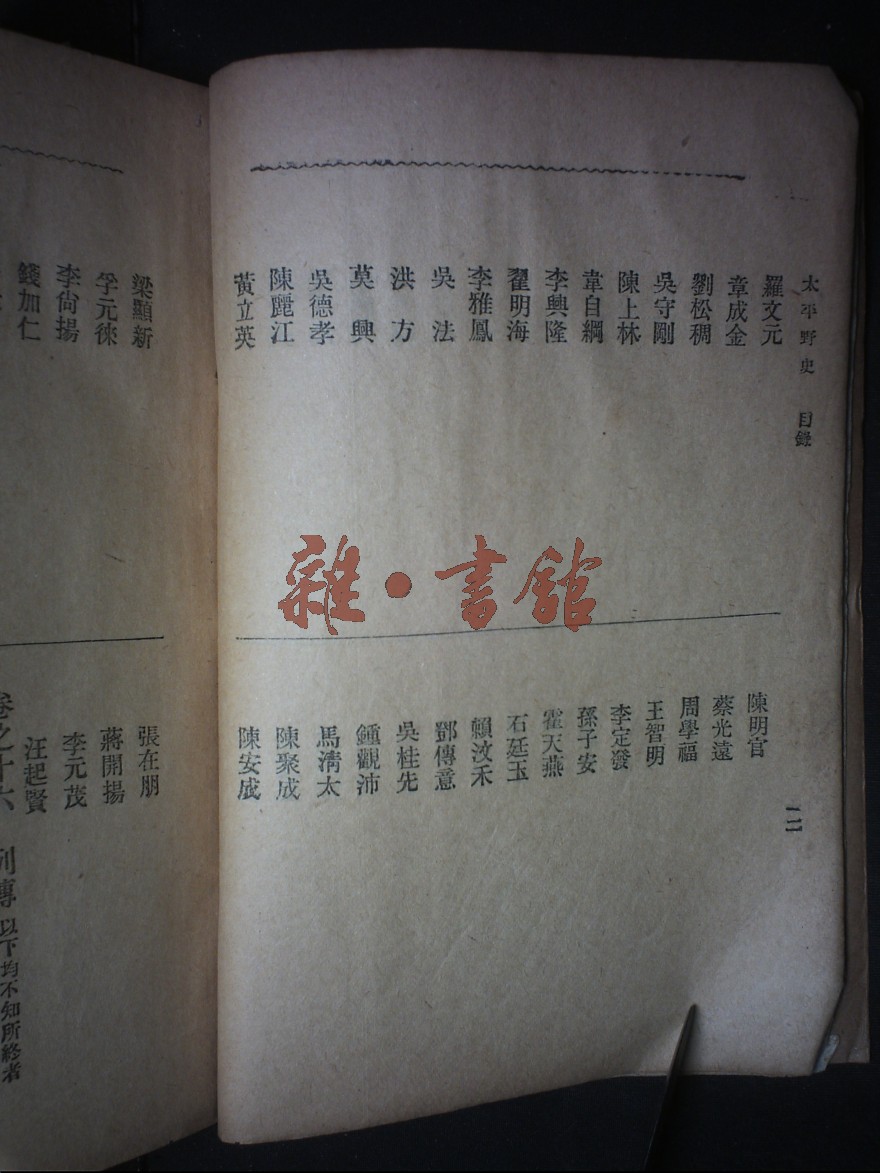 太平野史 目錄
羅文元
章成金
劉松稠
吳守剛
陳上林
韋自綱
李興隆
翟明海
李雅鳳
吳法
洪方
莫興
吳德孝
陳麗江
黃立英
陳明官
蔡光遠
周學福
王智明
李定發
孫子安
霍天燕
石廷玉
賴汶禾
鄧傳意
吳桂先
鍾觀沛
馬淸太
陳聚成
陳安成
二
雜·書館
梁顯新
李尙揚
錢加仁
張在朋
蔣開揚
李元茂
汪起賢
卷之十六 列傳 以下均不知所終者